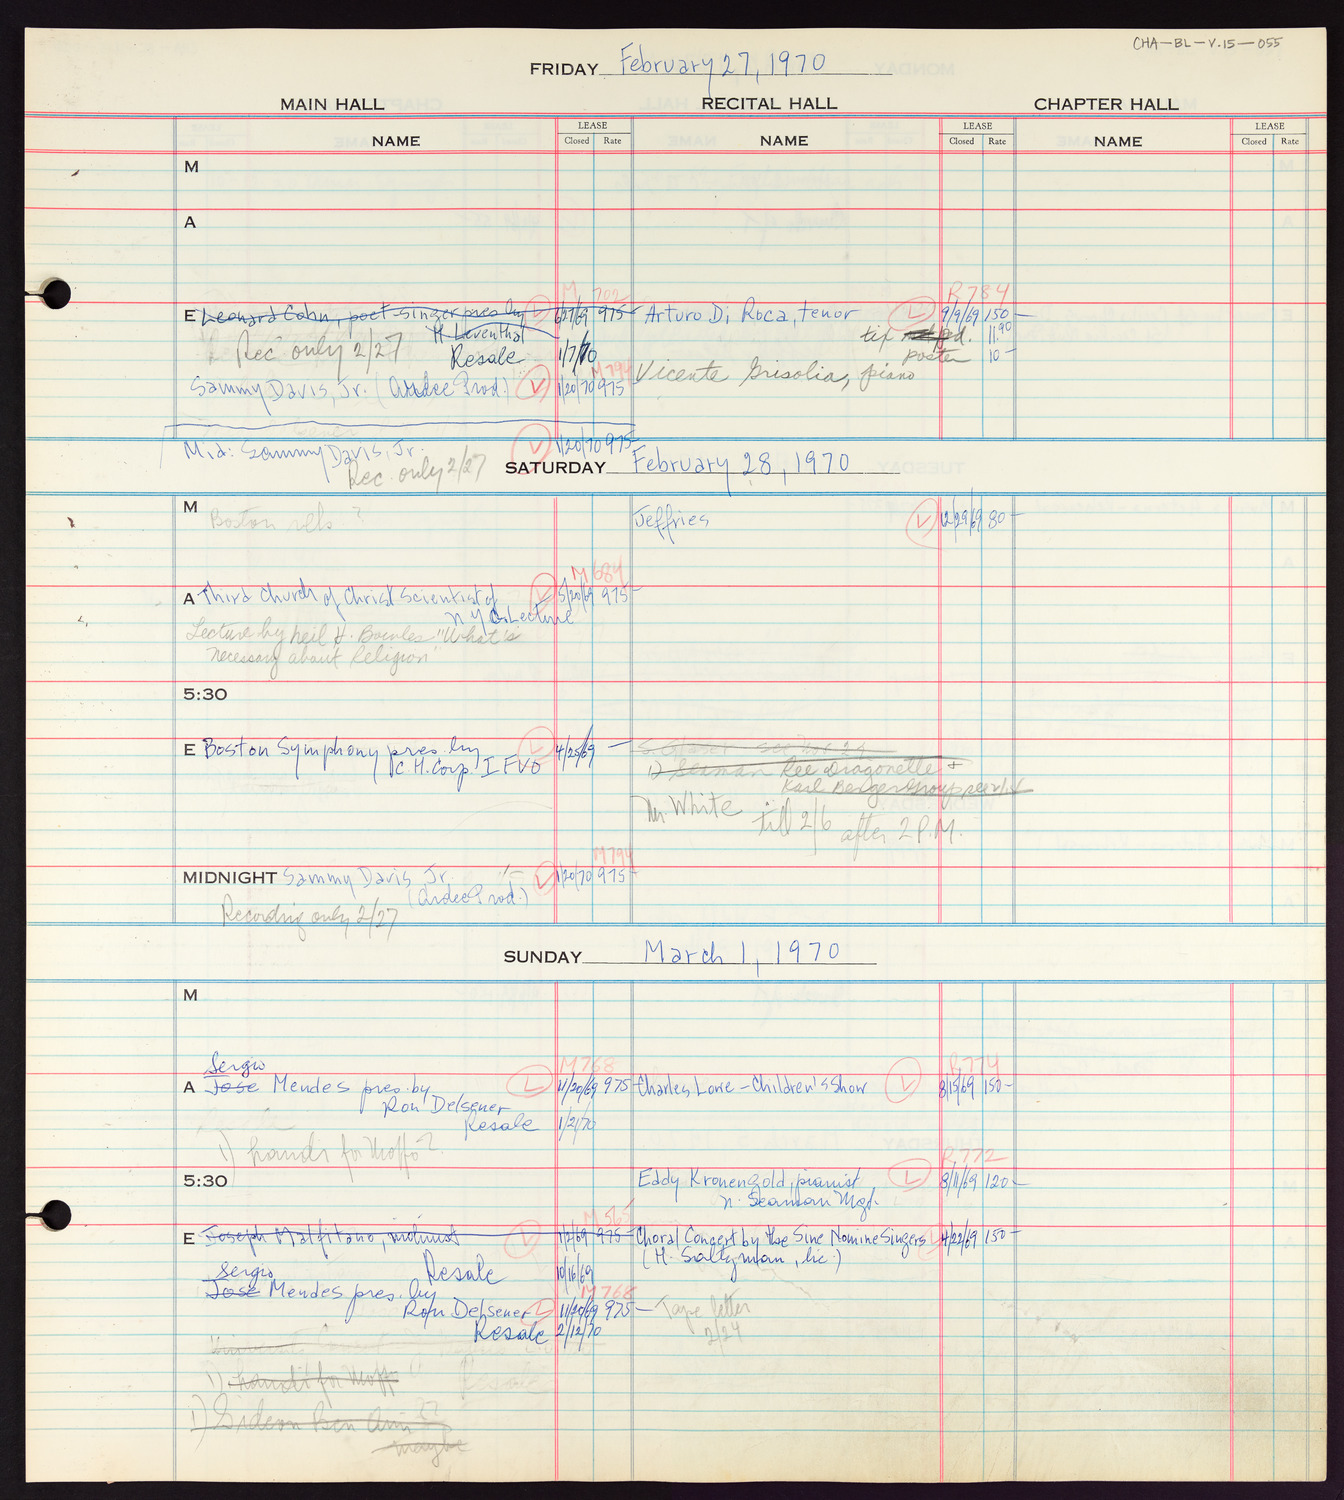 CHA-BL-V.15-055
FRIDAY February 27, 1970
MAIN HALL RECITAL HALL CHAPTER HALL
NAME LEASE Closed Rate NAME LEASE Closed Rate NAME LEASE Closed Rate
M
A
M 702 R784
E Leonard Cohn, poet-singer pres by 6/27/69 975- Arturo Di Roca, tenor L 9/9/69 150-
H Leventhal tix pd. 11.90
Rec only 2/27 Resale 1/7/70 poster 10-
M794
Sammy Davis, Jr. (Ardee Prod.) V 1/20/70 975 Vicente Grisolia, piano
Mid: Sammy Davis, Jr. V 1/20/70 975-
Rec. only 2/27
SATURDAY February 28, 1970
M Boston rels ? Jeffries V 12/29/69 80-
M 684
A Third Church of Christ Scientist of V 5/20/69 975-
N Y C Lecture
Lecture by Neil H. Bowles "What is
necessary about Religion"
5:30
E Boston Symphony pres. by L 4/25/69 -
C.H. Corp. IFVO
1) Seaman Ree Dragonette +
Karl Berger Group
Mr. White till 2/6 after 2 P.M.
M794
MIDNIGHT Sammy Davis, Jr. V 1/20/70 975-
(Ardee Prod.)
Recording only 2/27
SUNDAY March 1, 1970
M
Sergio M768 R774
A Jose Mendes pres. by L 11/20/69 975- Charles Lowe - Children's Show L 8/15/69 150-
Ron Delsener
Resale 1/21/70
1) hands for Moffo?
R772
5:30 Eddy Kronengold, pianist L 8/11/69 120-
N. Seaman Mgt.
M565
E Joseph Malfitano, violinist 1/2/69 975- Choral Concert by the Sine Nomine Singers 4/22/69 150-
(H. Saltzman, lic.)
Resale 10/16/69
Sergio
Jose Mendes pres. by M768
Ron Delsener L 11/20/69 975- Tape letter
2/24
Resale 2/12/70
1) hands for Moffo
1) Gideon Ben Ami ??
maybe